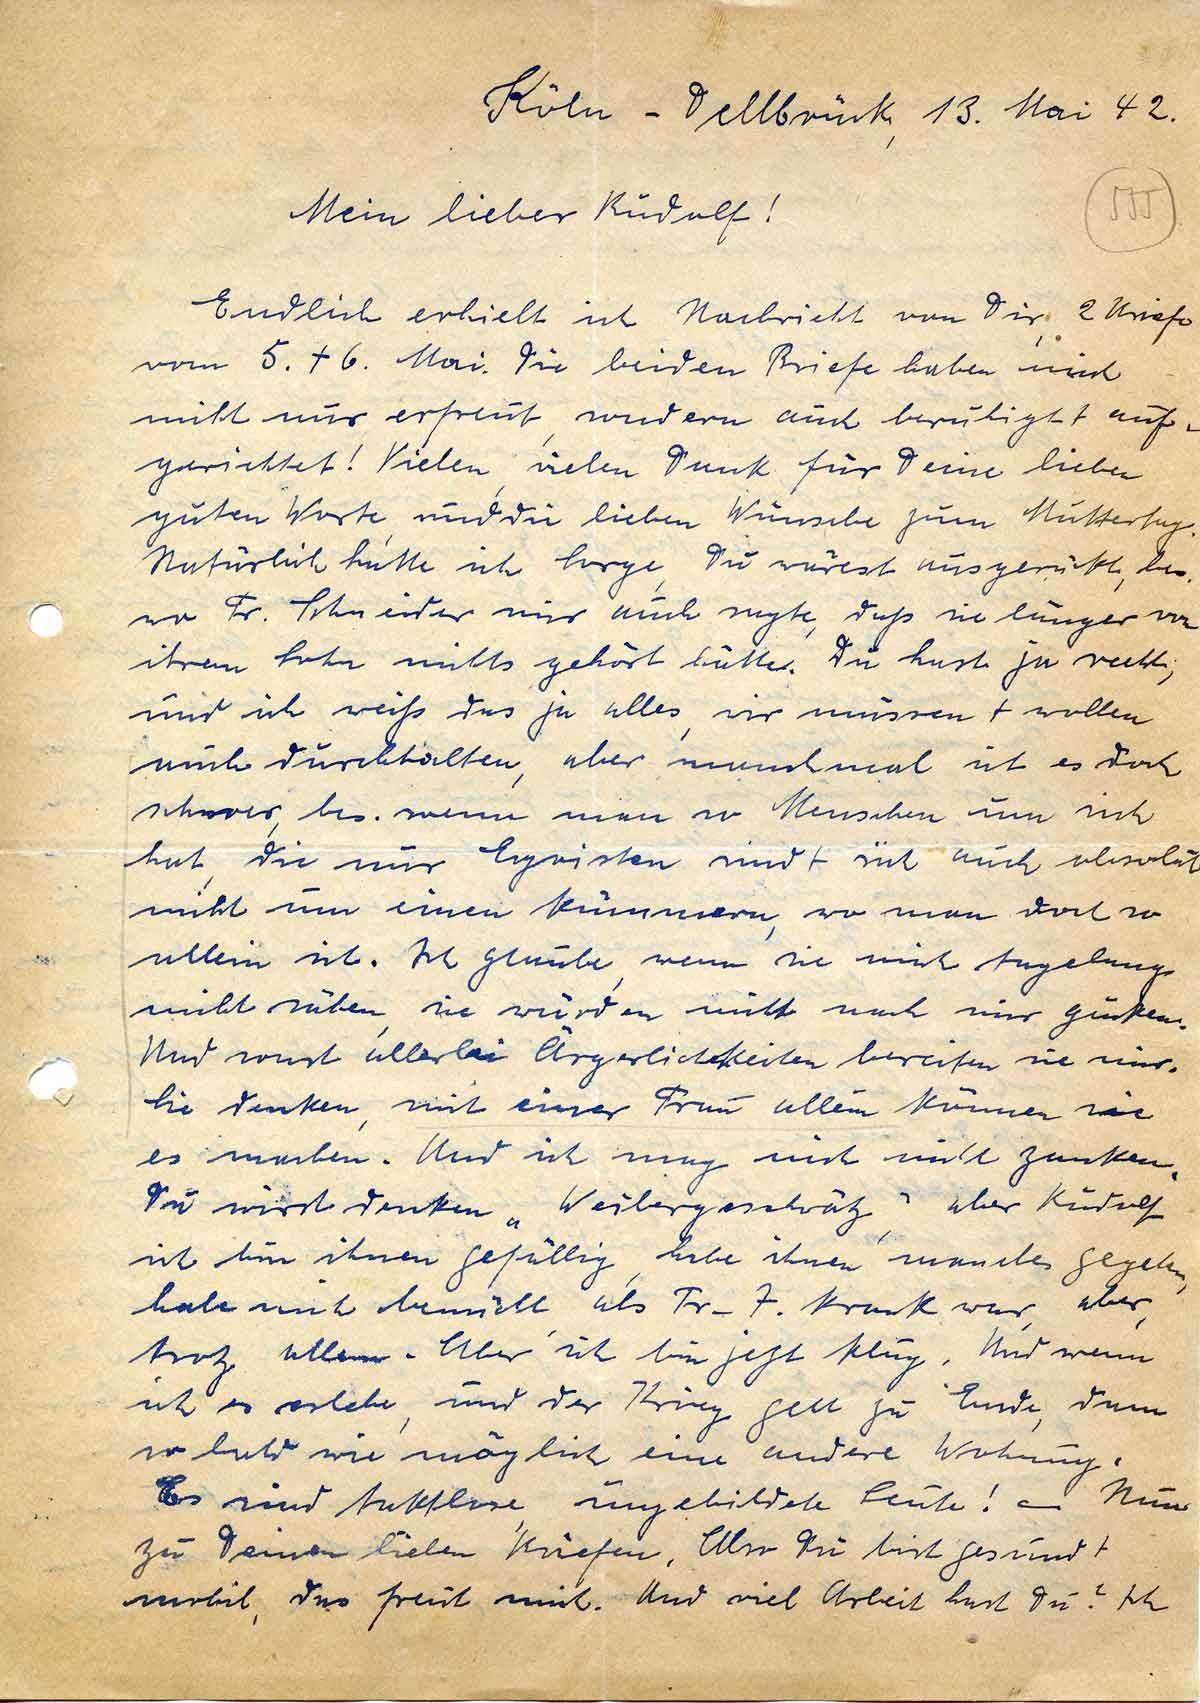 Köln - Dellbrück, 13. Mai 42.
555
Mein lieber Rudolf!
Endlich erhielt ich Nachricht von Dir, 2 Briefe
vom 5. + 6. Mai. Die beiden Briefe haben mich
nicht nur erfreut, sondern auch beruhigt + auf-
gerichtet! Vielen, vielen Dank für Deine lieben
guten Worte, und die lieben Wünsche zum Muttertag.
Natürlich hatte ich Sorge, Du wärest ausgerückt, bes.
wo Fr. Schneider mir auch sagte, daß sie länger von
ihrem Sohn nichts gehört hätte. Du hast ja recht,
und ich weiß das ja alles, wir müssen + wollen
auch durchhalten, aber manchmal ist es doch
schwer, bes. wenn man so Menschen um sich
hat, die nur Egoisten sind + sich auch absolut
nicht um einen kümmern, wo man doch so
allein ist. Ich glaube, wenn sie mich tagelang
nicht sähen, sie würden nicht nach mir gucken.
Und sonst allerlei Ärgerlichkeiten bereiten sie mir.
Sie denken, mit einer Frau allein können sie
es machen. Und ich mag mich nicht zanken.
Du wirst denken „Weibergeschwätz", aber Rudolf
ich bin ihnen gefällig, habe ihnen manches gegeben,
habe mich bemüht, als Fr. F. krank war, aber,
trotz allem. Aber ich bin jetzt klug. Und wenn
ich es erlebe, und der Krieg geht zu Ende, dann
so bald wie möglich eine andere Wohnung.
Es sind taktlose, ungebildete Leute! — Nun
zu Deinen lieben Briefen. Also Du bist gesund +
mobil, das freut mich. Und viel Arbeit hast Du? Ich